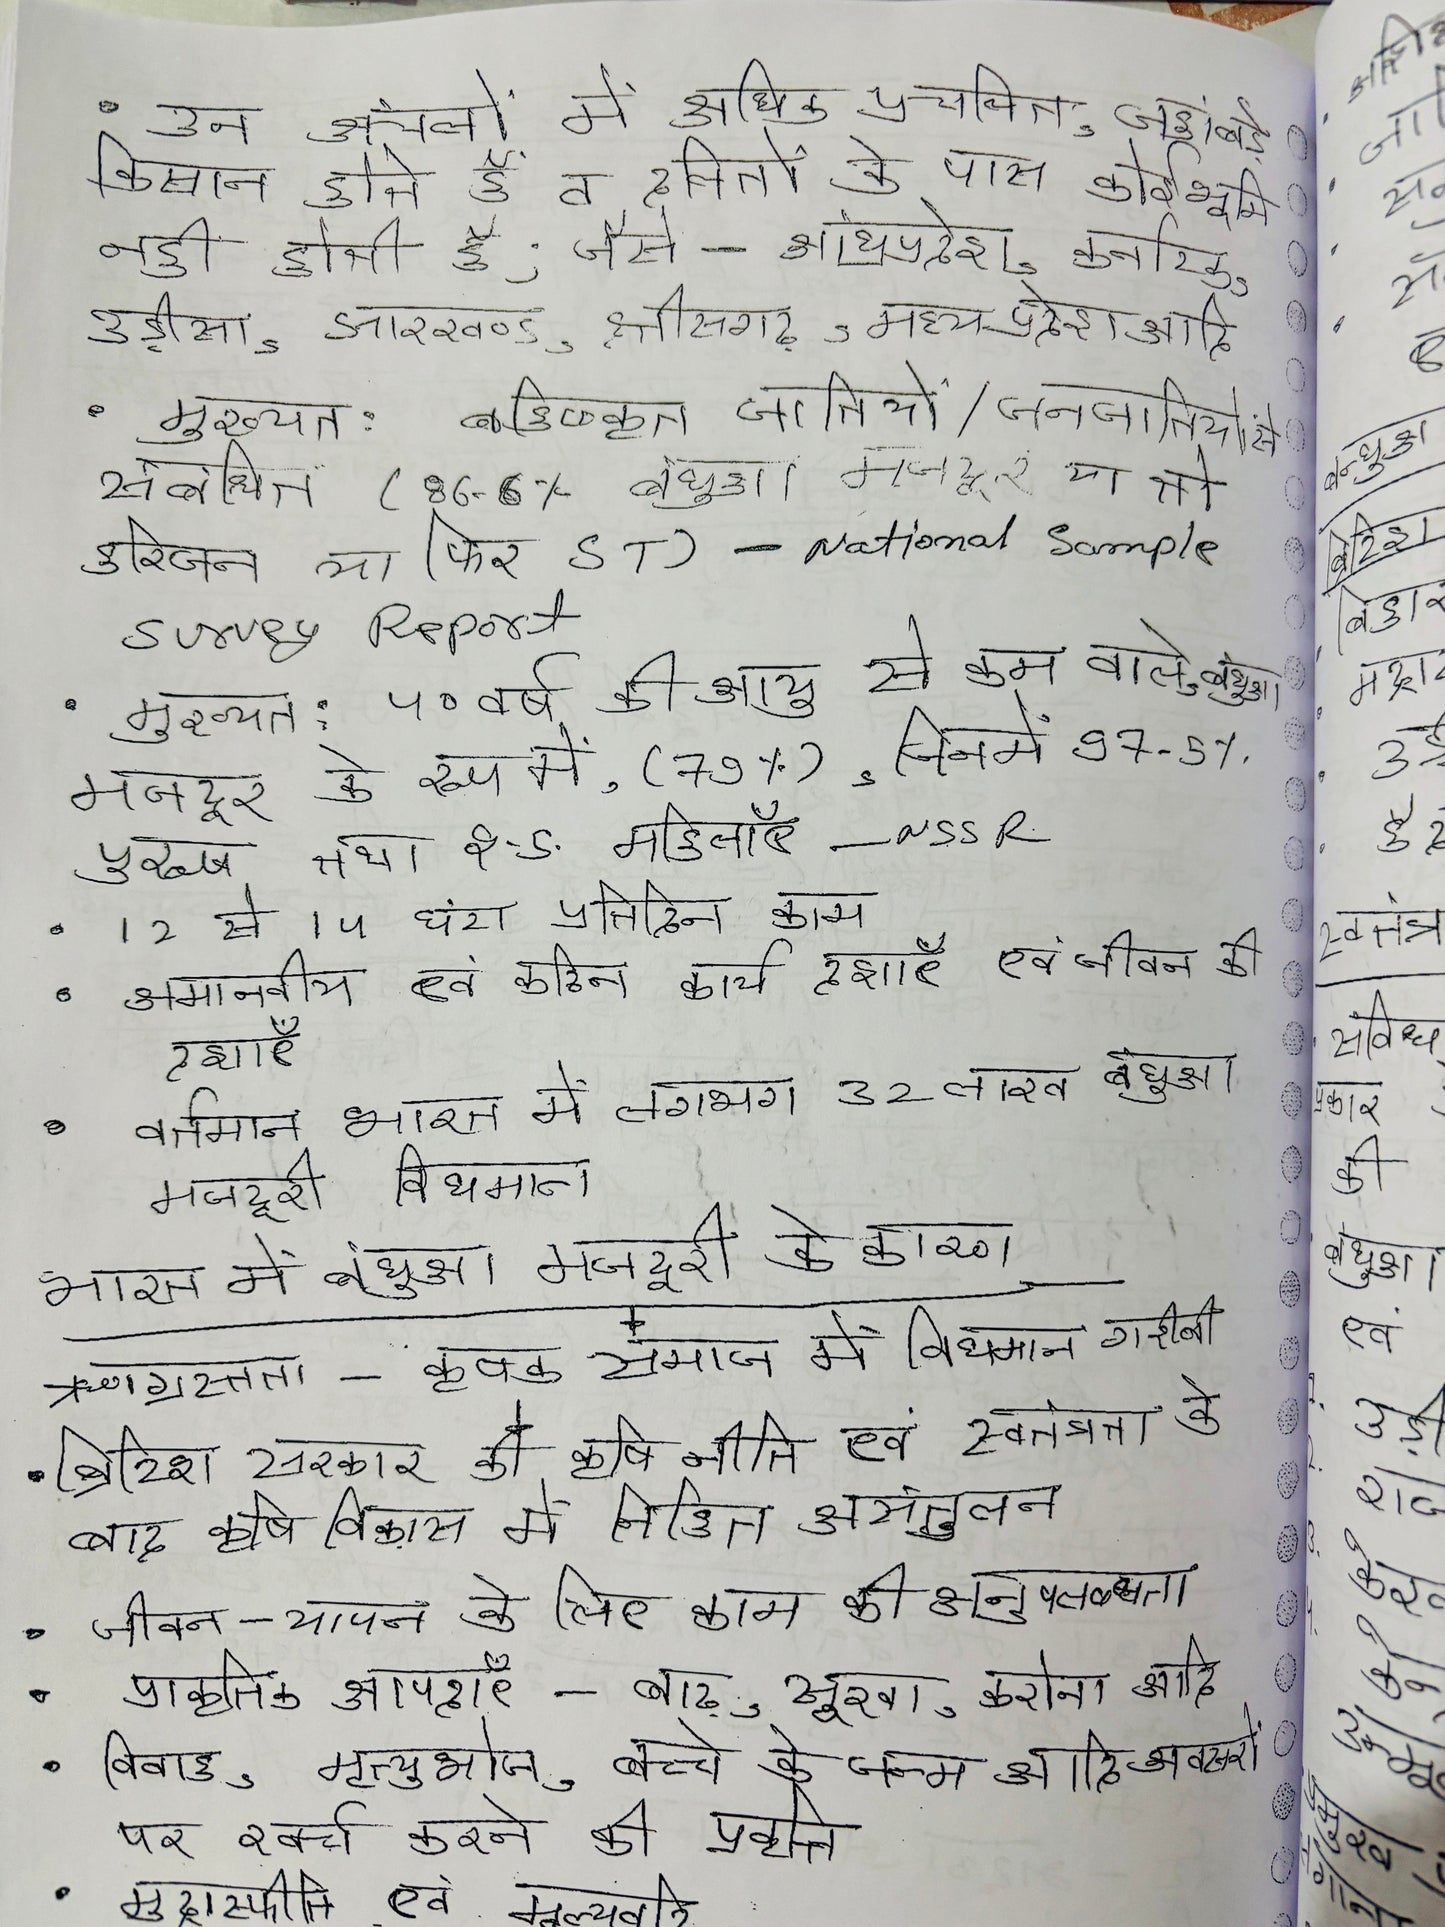 • उन अंचलों में अधिक प्रचलित, जहां बड़े
किसान होते हैं व दलितों के पास कोई भूमि
नही होती है; जैसे – आंध्रप्रदेश, कर्नाटक,
उड़ीसा, झारखण्ड, छत्तीसगढ़, मध्यप्रदेश आदि
• मुख्यत: बहिष्कृत जातियों/जनजातियों से
संबंधित (86.6% बंधुआ मजदूर या तो
हरिजन या फिर ST) – National Sample
Survey Report
• मुख्यत: 40 वर्ष की आयु से कम वाले, बंधुआ
मजदूर के रूप में, (79%), जिनमें 97.5%
पुरूष तथा 2.5. महिलाएँ – NSSR
• 12 से 14 घंटा प्रतिदिन काम
• अमानवीय एवं कठिन कार्य दशाएँ एवं जीवन की
दशाएँ
• वर्तमान भारत में लगभग 32 लाख बंधुआ
मजदूरी विधमान
भारत में बंधुआ मजदूरी के कारण
ऋणग्रस्तता – कृषक समाज में विधमान गरीबी
• ब्रिटिश सरकार की कृषि नीति एवं स्वतंत्रता के
बाद कृषि विकास में निहित असंतुलन
• जीवन – यापन के लिए काम की अनुपलब्धता
• प्राकृतिक आपदाएँ – बाढ़, सूखा, करोना आदि
• विवाह, मृत्युभोज, बच्चे के जन्म आदि अवसरों
पर खर्च करने की प्रवृत्ति
• मुद्रास्फीति एवं मूल्यवृद्धि
बन्धुआ
ब्रिटिश
बिहार
स्वतंत्र
प्रकार
की
बंधुआ
एवं